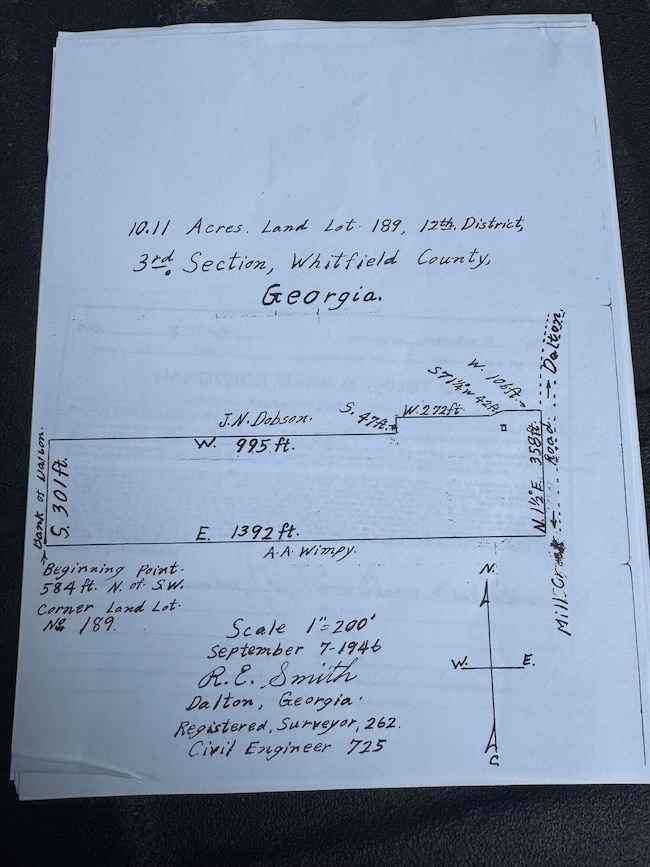 10.11 Acres. Land Lot 189, 12th. District,
3rd. Section, Whitfield County,
Georgia.
W. 106ft.
S 71¼ W 42ft
S. 47ft.
W. 272ft.
J.N. Dobson.
W. 995 ft.
Bank of Dalton.
S. 301 ft.
N. 1½° E. 358 ft.
Road → Dalton.
Mill Creek
E. 1392 ft.
A.A. Wimpy.
Beginning Point.
584 ft. N. of S.W.
Corner Land Lot
No 189.
Scale 1"=200'
September 7-1946
R.E. Smith
Dalton, Georgia.
Registered, Surveyor, 262.
Civil Engineer 725
N.
W. E.
HARDWICK BANK & TRUST